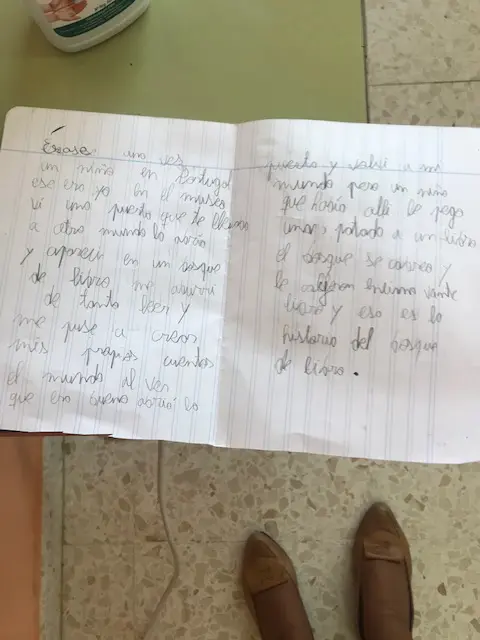 Érase una ves
un niño en Portugal
ese era yo en el museo
vi una puerta que te llevava
a otro mundo la abria
y apareci en un bosque
de libro me aburri
de tanto leer y
me puse a crear
mis propios cuentos
el mundo al ver
que era bueno abrió la
puerta y volvi a mi
mundo pero un niño
que havia alli le pego
una patada a un libro
el bosque se cabreo y
le
libro y esa es la
historia del bosque
de libro.